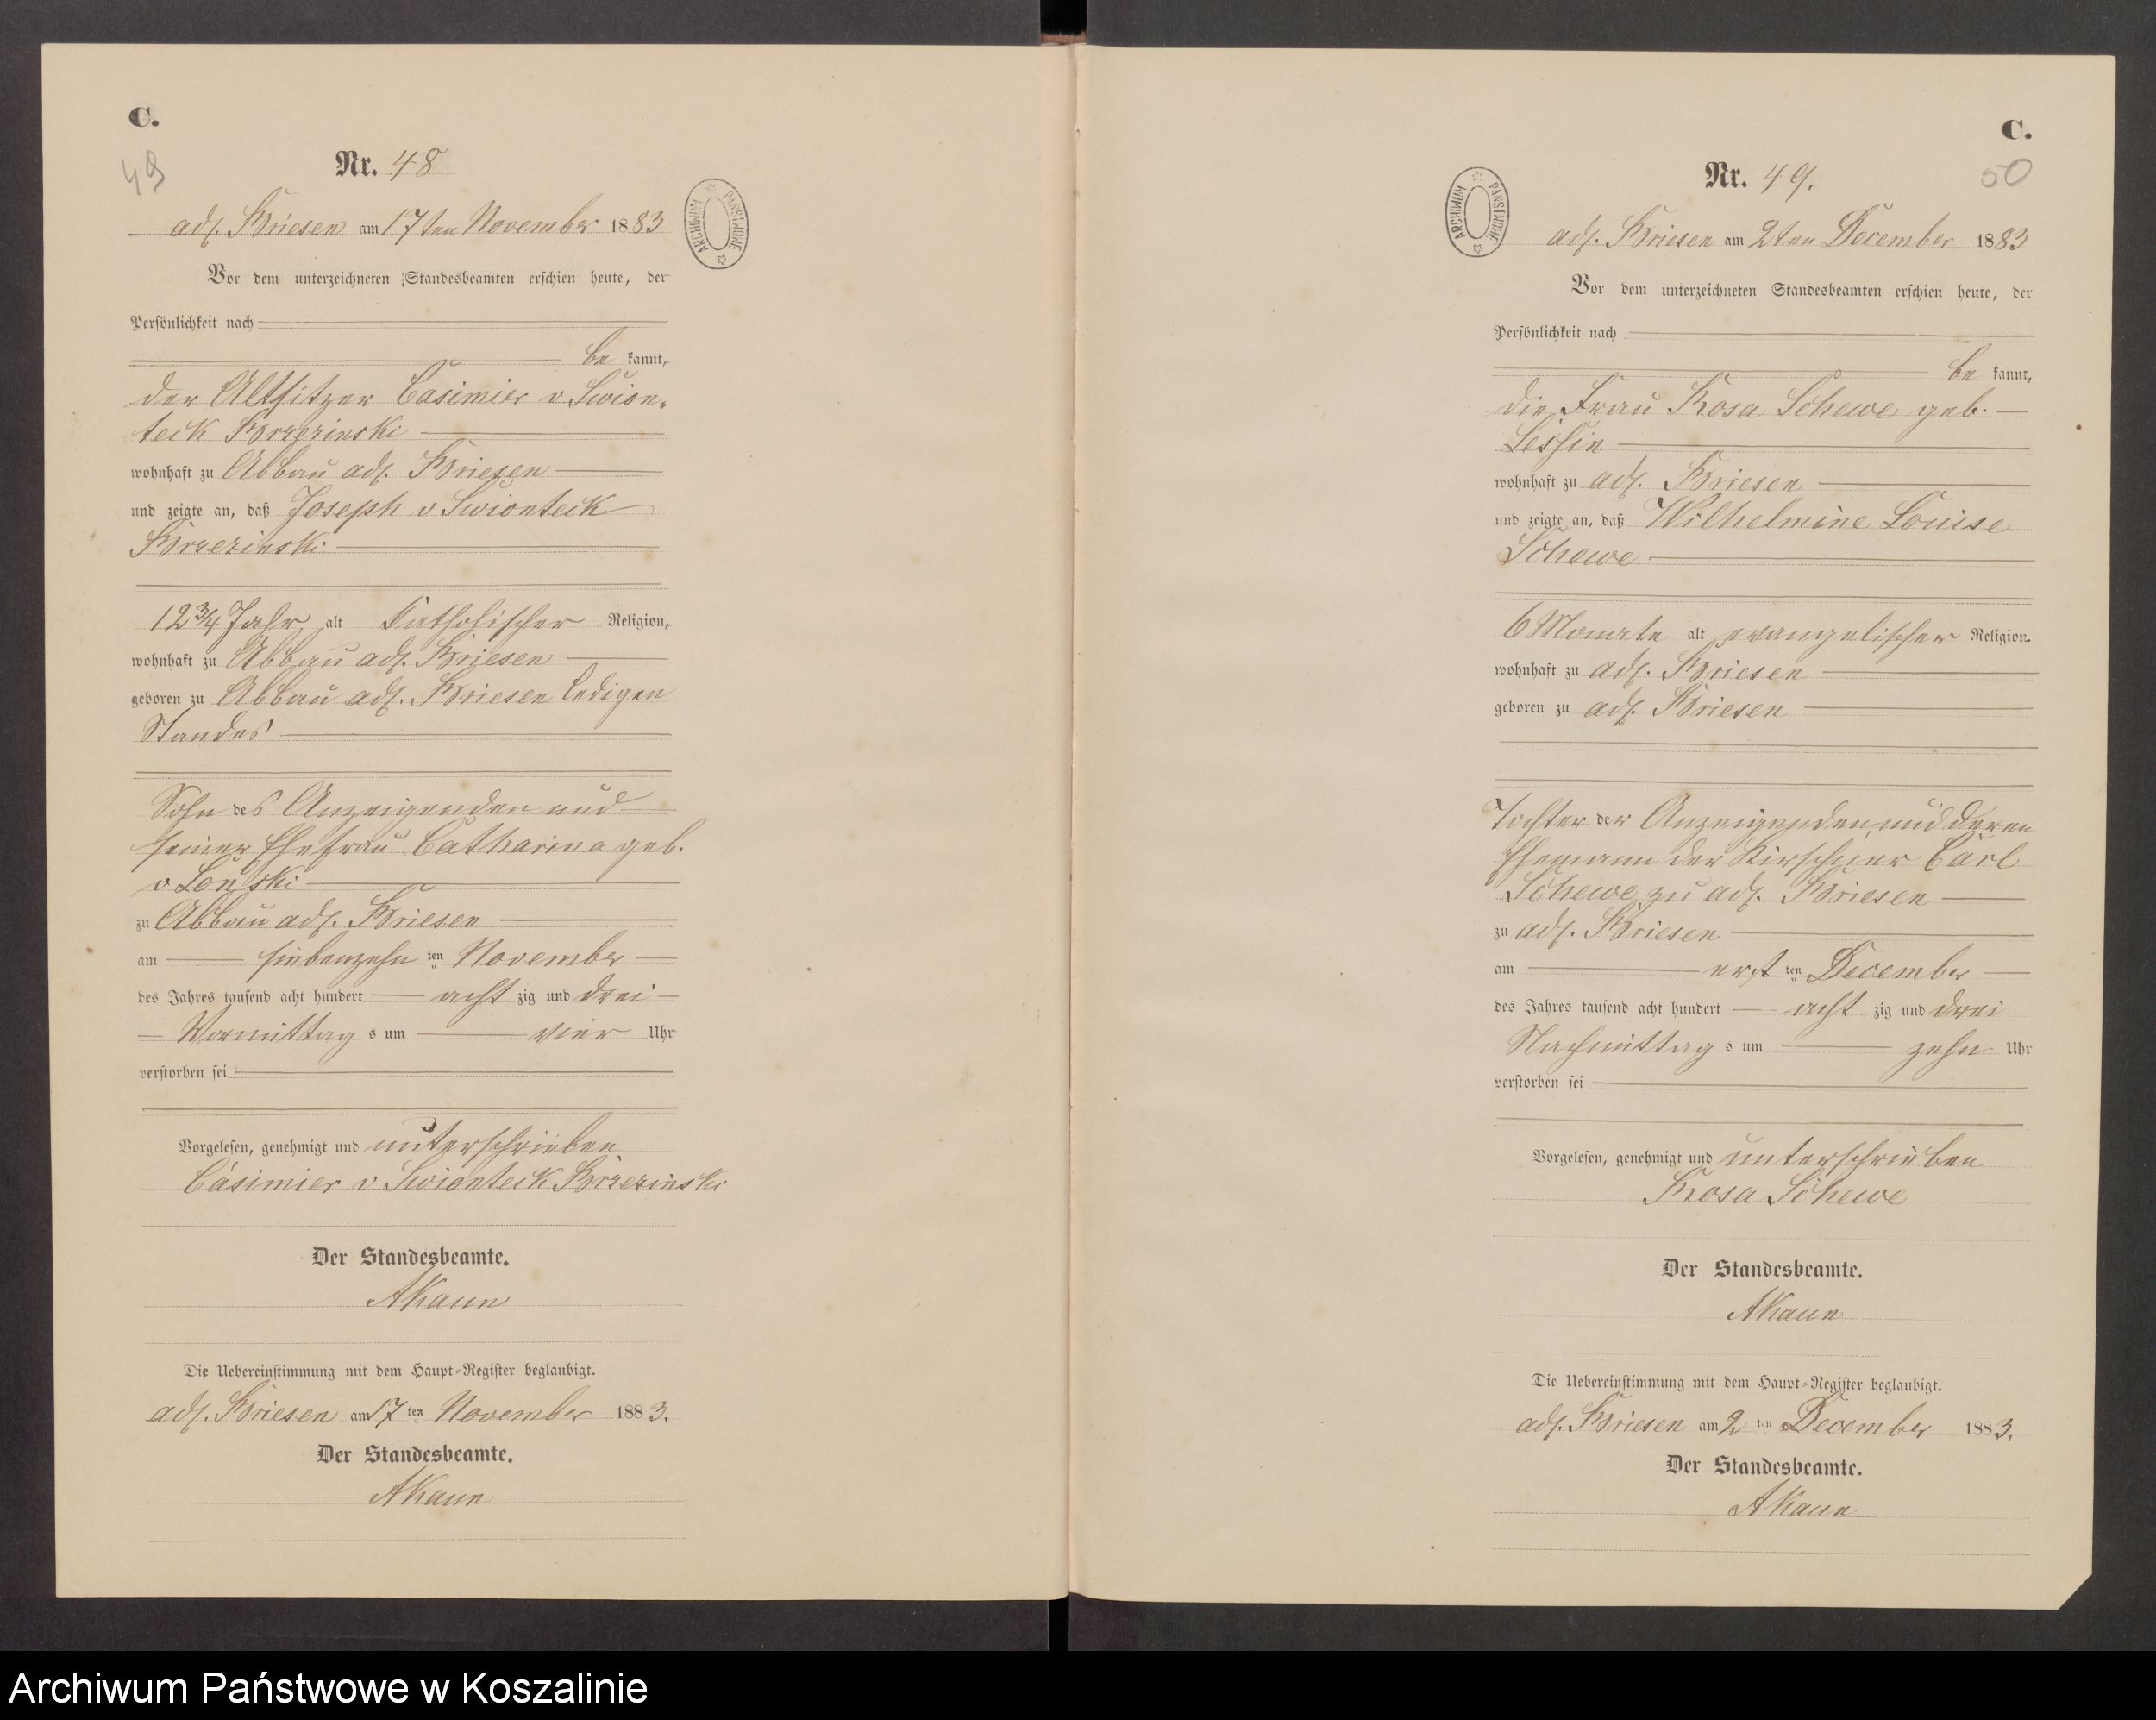 C.
49
Nr. 48
adl. Briesen am 17ten November 1883
Vor dem unterzeichneten Standesbeamten erschien heute, der
Persönlichkeit nach
be kannt,
der Altsitzer Casimier v Swion-
teck Brzezinski
wohnhaft zu Abbau adl. Briesen
und zeigte an, daß Joseph v Swionteck
Brzezinski
12¾ Jahr alt Katholischer Religion,
wohnhaft zu Abbau adl. Briesen
geboren zu Abbau adl. Briesen ledigen
Standes
Sohn des Anzeigenden und
seiner Ehefrau Catharina geb.
v
zu Abbau adl. Briesen
am siebenzehn ten November
des Jahres tausend acht hundert acht zig und drei
Vormittag s um vier Uhr
verstorben sei
Vorgelesen, genehmigt und unterschrieben
Casimier v Swionteck Brzezinski
Der Standesbeamte.
AKaun
Die Uebereinstimmung mit dem Haupt-Register beglaubigt.
adl. Briesen am 17 ten November 1883.
Der Standesbeamte.
AKaun
ARCHIWUM PAŃSTWOWE
C.
50
Nr. 49.
adl. Briesen am 2ten December 1883
Vor dem unterzeichneten Standesbeamten erschien heute, der
Persönlichkeit nach
be kannt,
die Frau Rosa Schewe geb.
wohnhaft zu adl. Briesen
und zeigte an, daß Wilhelmine Louise
Schewe
6 Monate alt evangelischer Religion
wohnhaft zu adl. Briesen
geboren zu adl. Briesen
Tochter der Anzeigenden und deren
Ehemann der Kirschner Carl
Schewe zu adl. Briesen
zu adl. Briesen
am erst ten December
des Jahres tausend acht hundert acht zig und drei
Nachmittag s um zehn Uhr
verstorben sei
Vorgelesen, genehmigt und unterschrieben
Rosa Schewe
Der Standesbeamte.
AKaun
Die Uebereinstimmung mit dem Haupt-Register beglaubigt.
adl. Briesen am 2 ten December 1883.
Der Standesbeamte.
AKaun
ARCHIWUM PAŃSTWOWE
Archiwum Państwowe w Koszalinie